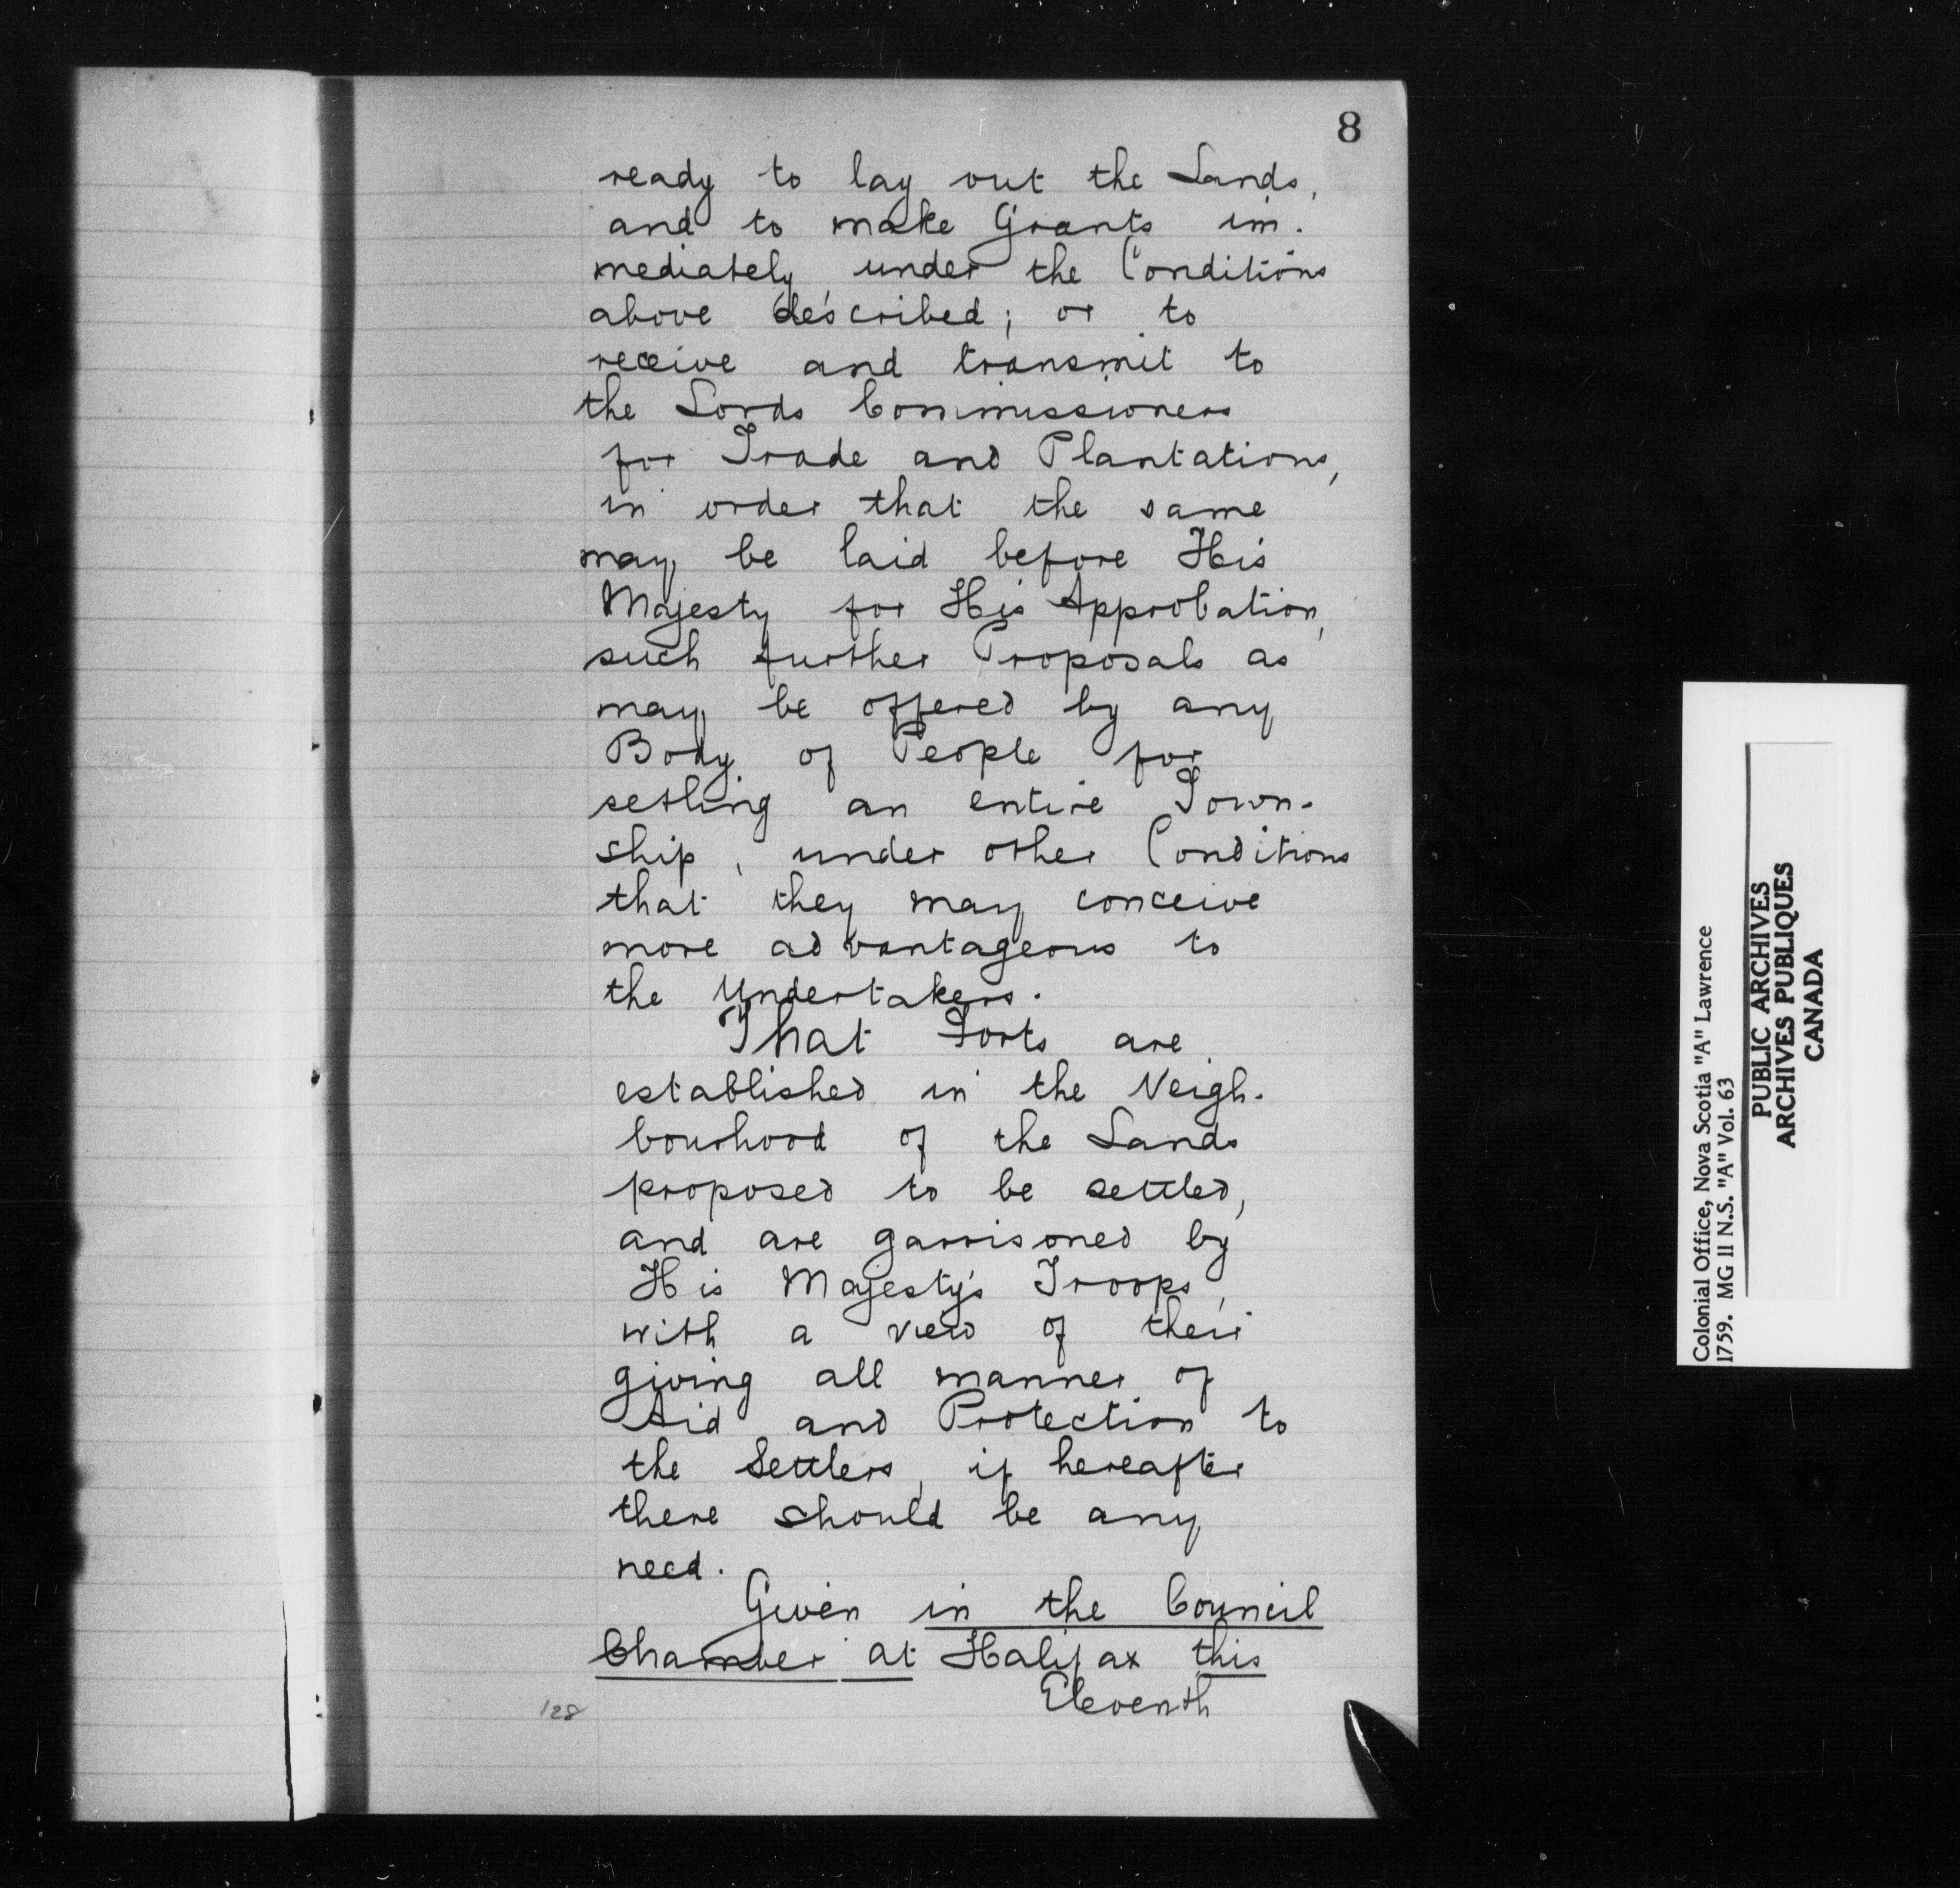 8
ready to lay out the Lands,
and to make Grants im-
mediately under the Conditions
above described; or to
receive and transmit to
the Lords Commissioners
for Trade and Plantations,
in order that the same
may be laid before His
Majesty for His Approbation,
such further Proposals as
may be offered by any
Body of People for
setling an entire Town-
ship, under other Conditions
that they may conceive
more advantageous to
the Undertakers.
That Forts are
established in the Neigh-
bourhood of the Lands
proposed to be settled,
and are garrisoned by
His Majesty's Troops,
with a view of their
giving all manner of
Aid and Protection to
the Settlers, if hereafter
there should be any
need.
Given in the Council
Chamber at Halifax this
Eleventh
128
Colonial Office, Nova Scotia "A" Lawrence
1759. MG 11 N.S. "A" Vol. 63
PUBLIC ARCHIVES
ARCHIVES PUBLIQUES
CANADA